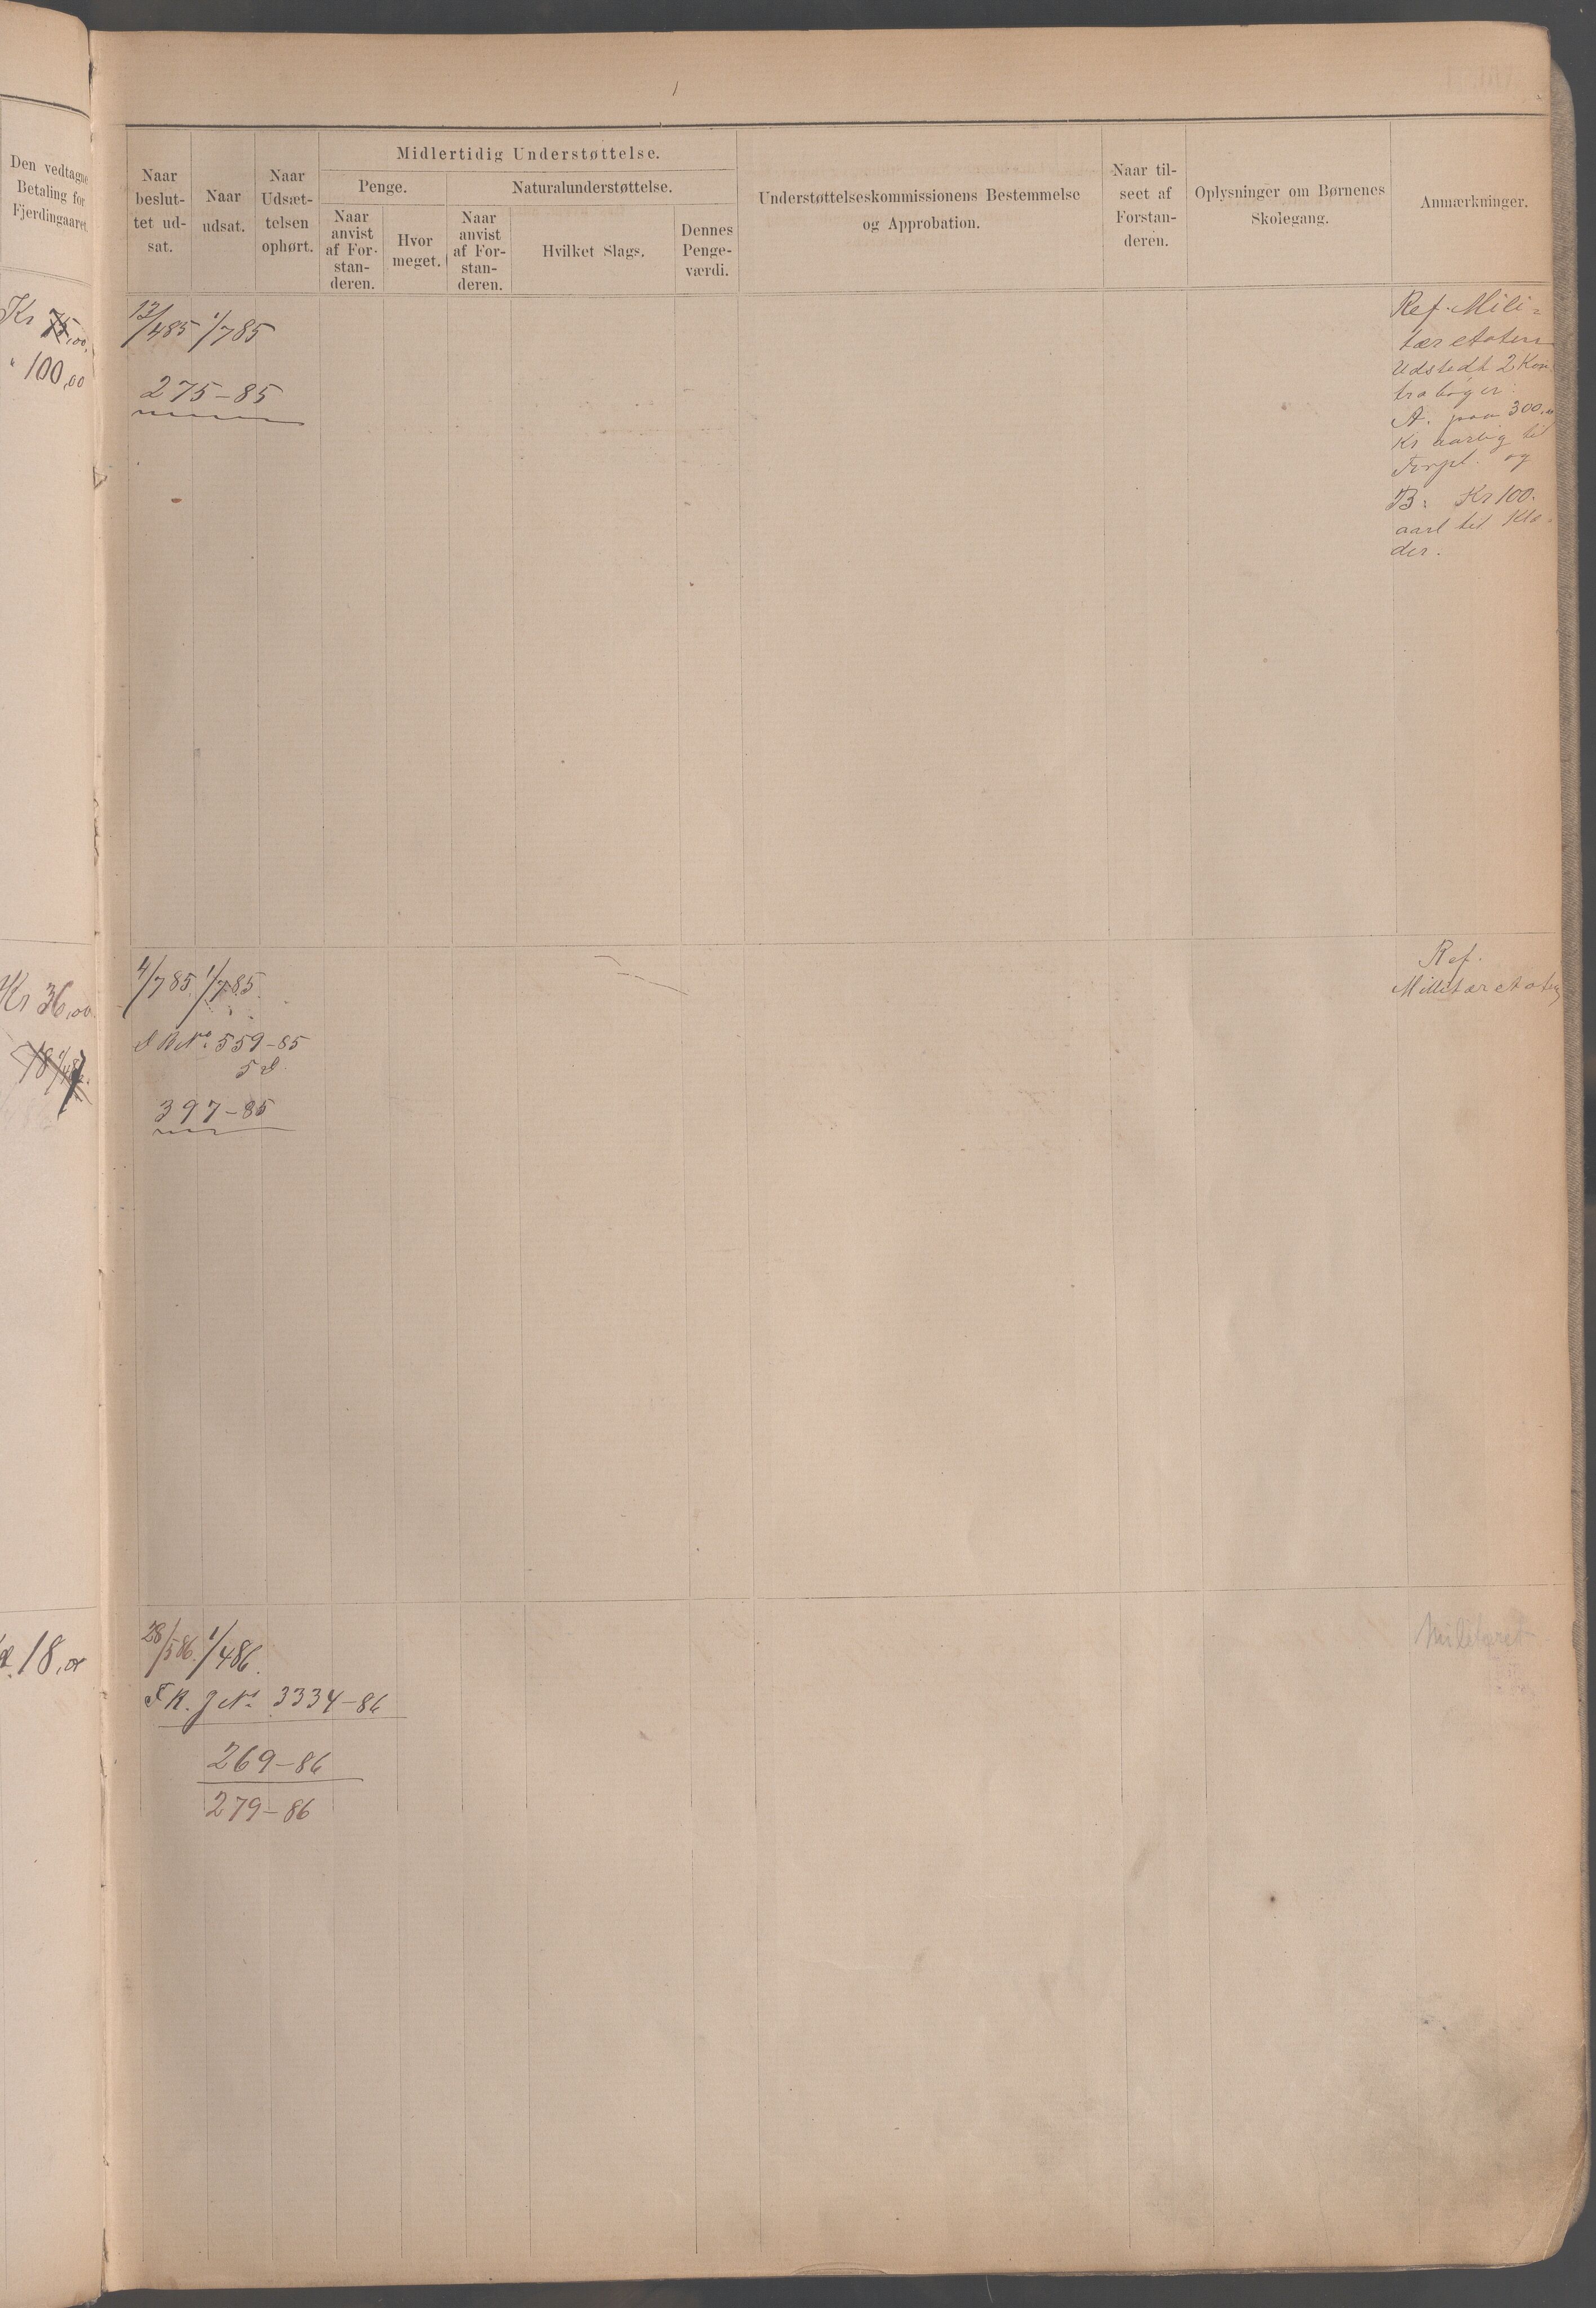 Den vedtagne
Betaling for
Fjerdingaaret.
Naar
beslut-
tet ud-
sat.
Naar
udsat.
Naar
Udsæt-
telsen
ophørt.
Midlertidig Understøttelse.
Penge.
Naturalunderstøttelse.
Naar
anvist
af For-
stan-
deren.
Hvor
meget.
Naar
anvist
af For-
stan-
deren.
Hvilket Slags.
Dennes
Penge-
værdi.
Understøttelseskommissionens Bestemmelse
og Approbation.
Naar til-
seet af
Forstan-
deren.
Oplysninger om Børnenes
Skolegang.
Anmærkninger.
Kr 75,00
" 100,00
13/485 1/785
275-85
Ref. Mili-
tær etaten
Udstedt 2 Kon
trabøger:
A. paa 300,
Kr aarlig til
Forpl. og
B: Kr 100.
aarl til Klæ-
der.
Kr 36,00
4/785 1/785
No. 559-85
397-85
Ref.
Millitær etaten
18,00
28/586. 1/486.
F K. J No. 3334-86
269-86
279-86
Militæret